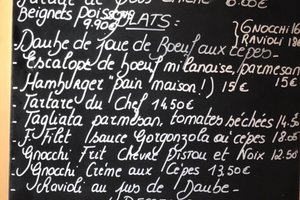 8.00€
Beignets poissons
9.90€
PLATS:
GNOCCHI 16
RAVIOLI 18
- Daube de Joue de Boeuf aux cèpes -
- Escalope de boeuf milanaise, parmesan
15€
- Hamburger "pain maison!) 15€
- Tartare du Chef 14.50€
- Tagliata parmesan, tomates séchées 14.50
- F. Filet (sauce Gorgonzola ou cèpes 18.00
- Gnocchi Fuit Chèvre Pistou et Noix 12.50
- Gnocchi Crème aux Cèpes 13,50€
- Ravioli au jus de Daube -